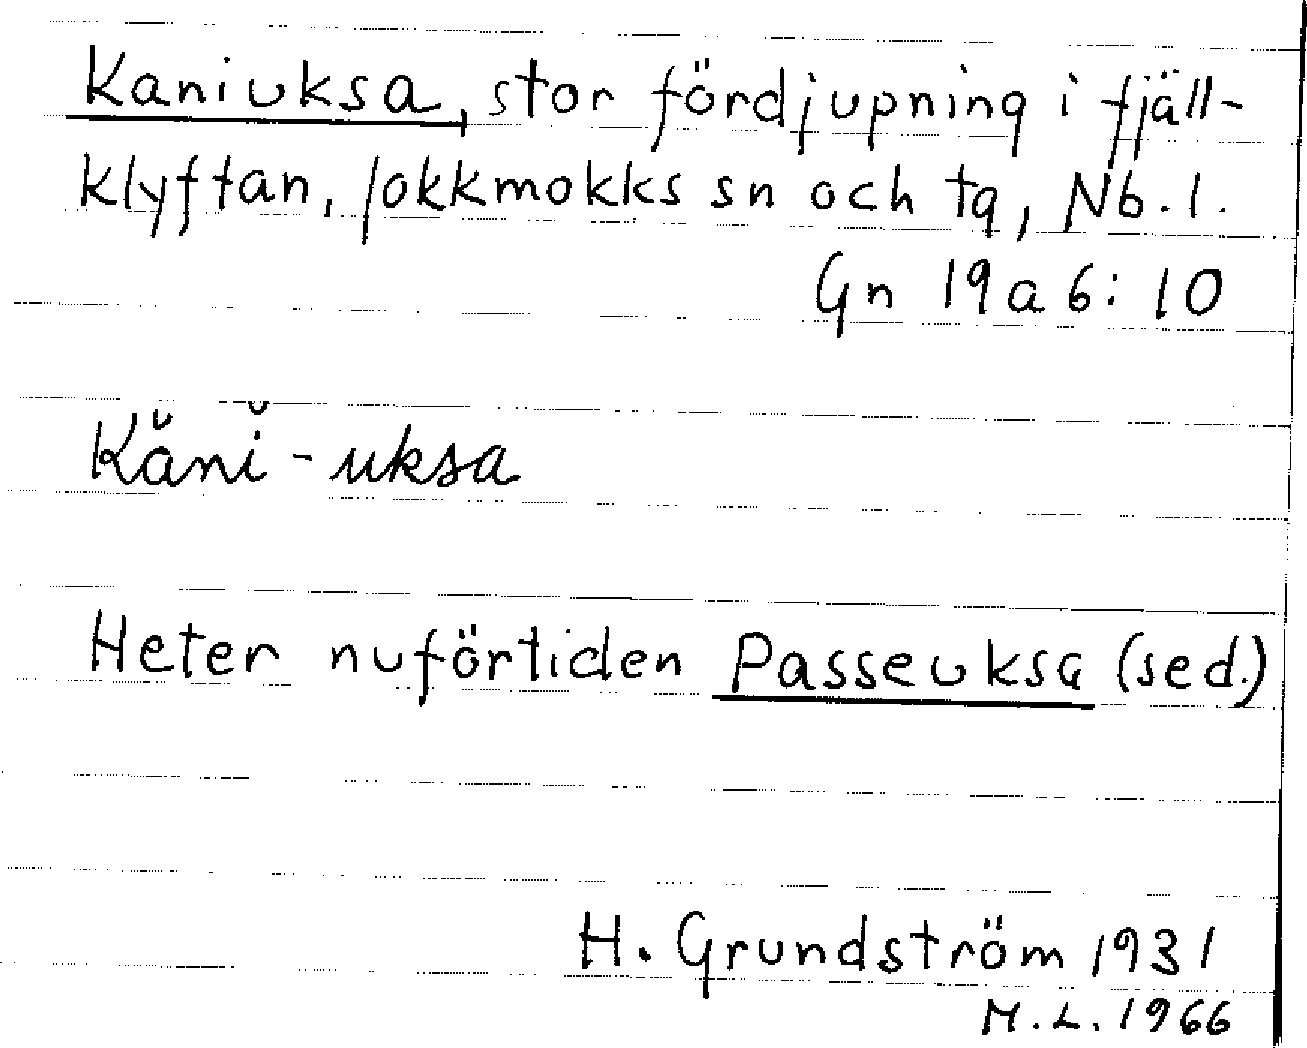 Kaniuksa, stor fördjupning i fjäll-
klyftan, Jokkmokks sn och tg, Nb. l.
Gn 19a6:10
Kănĭ-uksa
Heter nuförtiden Passeuksa (sed.)
H. Grundström 1931
M.L. 1966